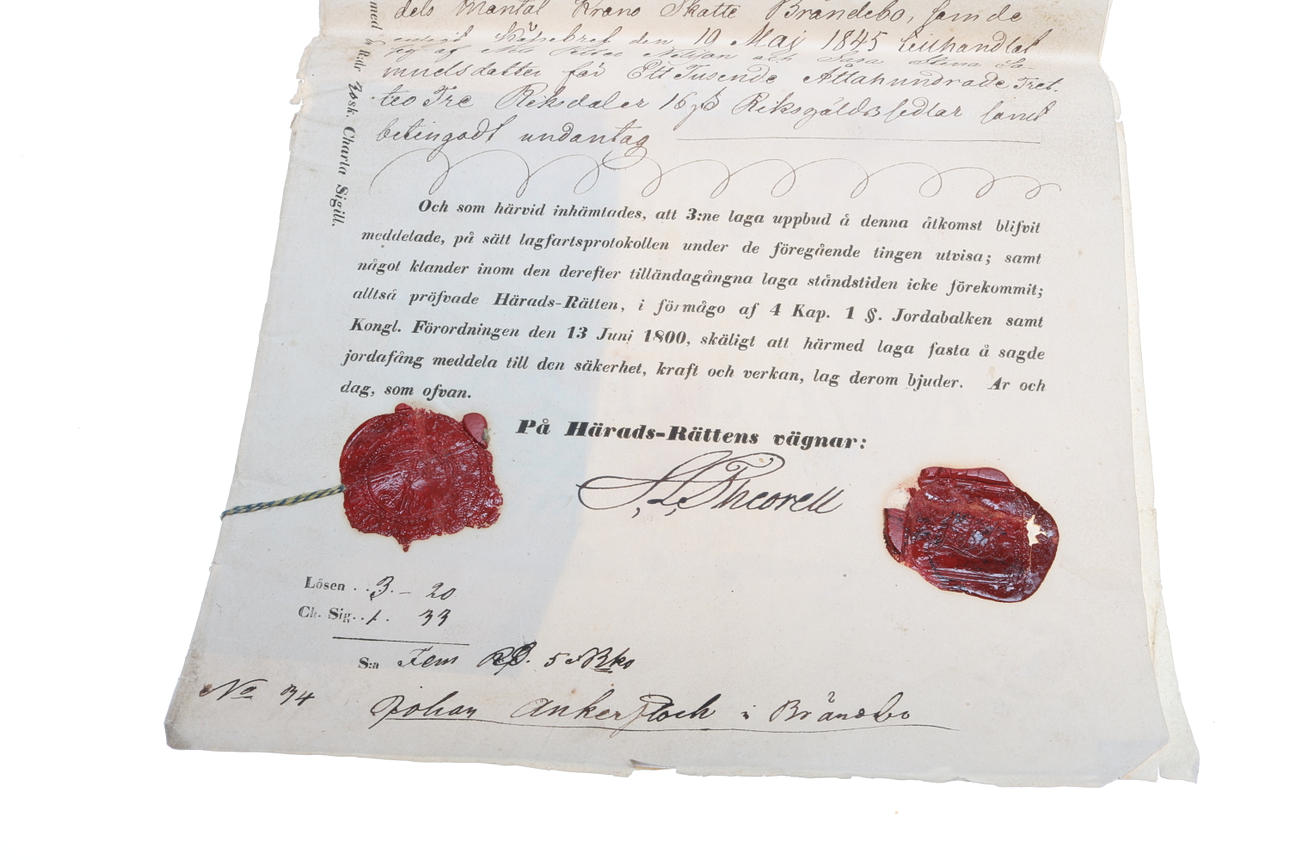 dels Mantal Krono Skatte Brändebo, som de
enligt Köpebref den 19 Maj 1845 tillhandlat
sig af Nils Petter Nilsson och Sara Stina Sa-
muelsdotter för Ett Tusende Åttahundrade Tret-
tio Tre Riksdaler 16 ß Riksgälds sedlar samt
betingadt undantag
med Rdr sk. Charta Sigill.
Och som härvid inhämtades, att 3:ne laga uppbud å denna åtkomst blifvit
meddelade, på sätt lagfartsprotokollen under de föregående tingen utvisa; samt
något klander inom den derefter tilländagångna laga ståndstiden icke förekommit;
alltså pröfvade Härads-Rätten, i förmågo af 4 Kap. 1 §. Jordabalken samt
Kongl. Förordningen den 13 Juni 1800, skäligt att härmed laga fasta å sagde
jordafång meddela till den säkerhet, kraft och verkan, lag derom bjuder. År och
dag, som ofvan.
På Härads-Rättens vägnar:
S. L. Theorell
Lösen . . 3. – 20
Ch. Sig. . 1. 33
S:a Fem RD. 5 s Bko
No 34 Johan Ankerstock i Brändebo